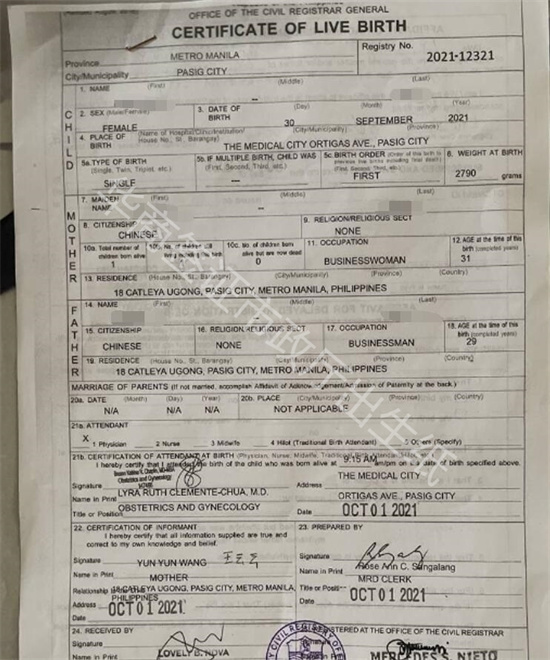 OFFICE OF THE CIVIL REGISTRAR GENERAL
CERTIFICATE OF LIVE BIRTH
Province METRO MANILA
Registry No. 2021-12321
City/Municipality PASIG CITY
CHILD
1. NAME (First) (Middle) (Last)
2. SEX (Male/Female) FEMALE
3. DATE OF BIRTH (Day) 30 (Month) SEPTEMBER (Year) 2021
4. PLACE OF BIRTH (Name of Hospital/Clinic/Institution/ House No., St., Barangay) (City/Municipality) (Province)
THE MEDICAL CITY ORTIGAS AVE., PASIG CITY
5a. TYPE OF BIRTH (Single, Twin, Triplet, etc.) SINGLE
5b. IF MULTIPLE BIRTH, CHILD WAS (First, Second, Third, etc.)
5c. BIRTH ORDER (First, Second, Third, etc.) FIRST
6. WEIGHT AT BIRTH 2790 grams
MOTHER
7. MAIDEN NAME (First) (Middle) (Last)
8. CITIZENSHIP CHINESE
9. RELIGION/RELIGIOUS SECT NONE
10a. Total number of children born alive 1
10c. No. of children born alive but are now dead 0
11. OCCUPATION BUSINESSWOMAN
12. AGE at the time of this birth (completed years) 31
13. RESIDENCE (House No., St., Barangay) (City/Municipality) (Province) (Country)
18 CATLEYA UGONG, PASIG CITY, METRO MANILA, PHILIPPINES
FATHER
14. NAME (First) (Middle) (Last)
15. CITIZENSHIP CHINESE
16. RELIGION/RELIGIOUS SECT NONE
17. OCCUPATION BUSINESSMAN
18. AGE at the time of this birth (completed years) 29
19. RESIDENCE (House No., St., Barangay) (City/Municipality) (Province) (Country)
18 CATLEYA UGONG, PASIG CITY, METRO MANILA, PHILIPPINES
MARRIAGE OF PARENTS (If not married, accomplish Affidavit of Acknowledgement/Admission of Paternity at the back.)
20a. DATE (Month) (Day) (Year) N/A N/A N/A
20b. PLACE (City/Municipality) (Province) (Country) NOT APPLICABLE
21a. ATTENDANT
X 1 Physician 2 Nurse 3 Midwife 4 Hilot (Traditional Birth Attendant) 5 Others (Specify)
21b. CERTIFICATION OF ATTENDANT AT BIRTH (Physician, Nurse, Midwife, Traditional Birth Attendant/
I hereby certify that I attended the birth of the child who was born alive at 9:15 AM am/pm on the date of birth specified above.
Signature
THE MEDICAL CITY
Name in Print LYRA RUTH CLEMENTE-CHUA, M.D.
ORTIGAS AVE., PASIG CITY
Title or Position OBSTETRICS AND GYNECOLOGY
Date OCT 01 2021
22. CERTIFICATION OF INFORMANT
I hereby certify that all information supplied are true and
correct to my own knowledge and belief.
Signature
Name in Print YUN YUN WANG
MOTHER
18 CATLEYA UGONG, PASIG CITY, METRO MANILA,
PHILIPPINES
Address
Date OCT 01 2021
23. PREPARED BY
Signature
Name in Print Rose Ann C. Sungalang
Title or Position MRD CLERK
Date OCT 01 2021
24. RECEIVED BY
Signature
LOVELY B. NOVA
REGISTERED AT THE OFFICE OF THE CIVIL REGISTRAR
MERCEDES S. NIETO